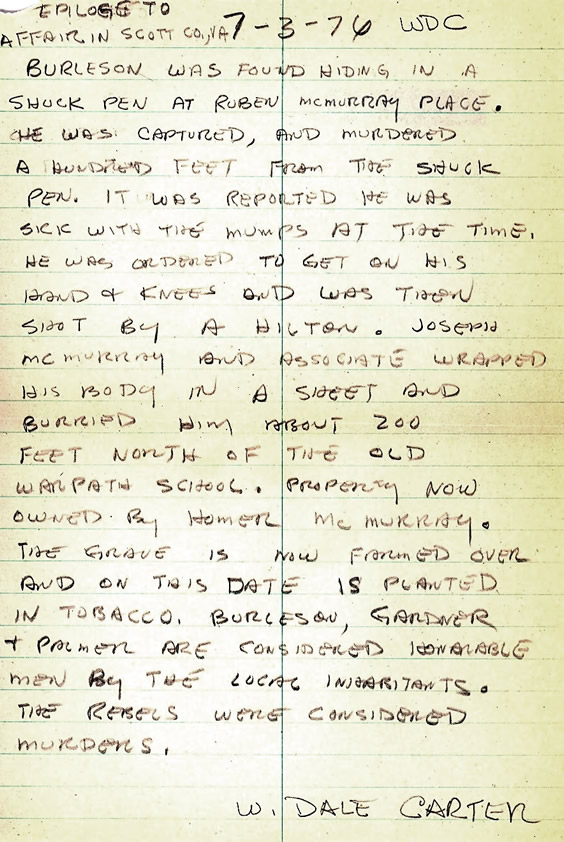 EPILOGE TO
AFFAIR IN SCOTT CO., VA 7-3-76 WDC
BURLESON WAS FOUND HIDING IN A
SHUCK PEN AT RUBEN McMURRAY PLACE.
HE WAS CAPTURED, AND MURDERED
A HUNDRED FEET FROM THE SHUCK
PEN. IT WAS REPORTED HE WAS
SICK WITH THE MUMPS AT THE TIME.
HE WAS ORDERED TO GET ON HIS
HAND & KNEES AND WAS THEN
SHOT BY A HILTON. JOSEPH
McMURRAY AND ASSOCIATE WRAPPED
HIS BODY IN A SHEET AND
BURRIED HIM ABOUT 200
FEET NORTH OF THE OLD
WARPATH SCHOOL. PROPERTY NOW
OWNED BY HOMER McMURRAY.
THE GRAVE IS NOW FARMED OVER
AND ON THIS DATE IS PLANTED
IN TOBACCO. BURLESON, GARDNER
& PALMER ARE CONSIDERED HONARABLE
MEN BY THE LOCAL INHABITANTS.
THE REBELS WERE CONSIDERED
MURDERS.
W. DALE CARTER